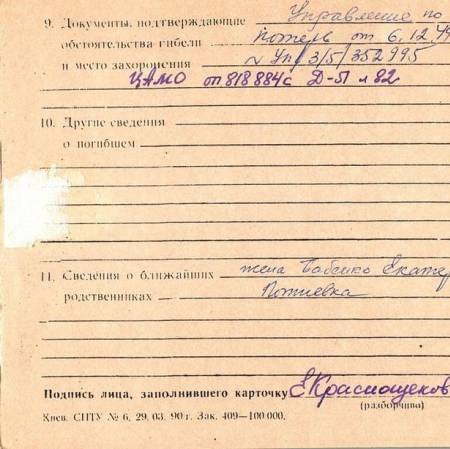 9. Документы, подтверждающие Управление по
обстоятельства гибели потерь от 6.12.44
и место захоронения № Уп/3/5/352995
ЦАМО оп 818884с Д-51 л 82
10. Другие сведения
о погибшем
11. Сведения о ближайших жена Бабенко Екатер
родственниках
Подпись лица, заполнившего карточку ЕКраснощеков
(разборчиво)
Киев. СПТУ № 6, 29. 03. 90 г. Зак. 409—100 000.